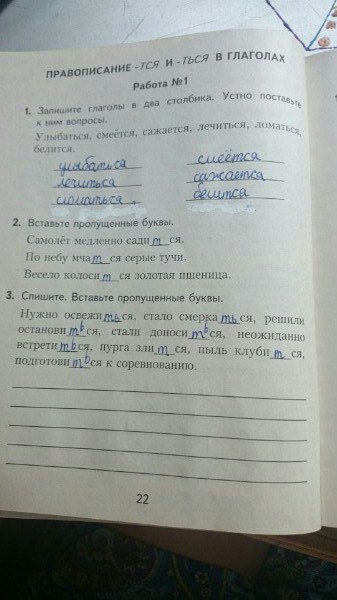 ПРАВОПИСАНИЕ -ТСЯ И -ТЬСЯ В ГЛАГОЛАХ
Работа №1
1. Запишите глаголы в два столбика. Устно поставьте
к ним вопросы.
Улыбаться, смеётся, сажается, лечиться, ломаться,
белится.
улыбаться смеётся
лечиться сажается
ломаться белится
2. Вставьте пропущенные буквы.
Самолёт медленно садится.
По небу мчатся серые тучи.
Весело колосится золотая пшеница.
3. Спишите. Вставьте пропущенные буквы.
Нужно освежиться, стало смеркаться, решили
остановиться, стали доноситься, неожиданно
встретиться, пурга злится, пыль клубится,
подготовиться к соревнованию.
22